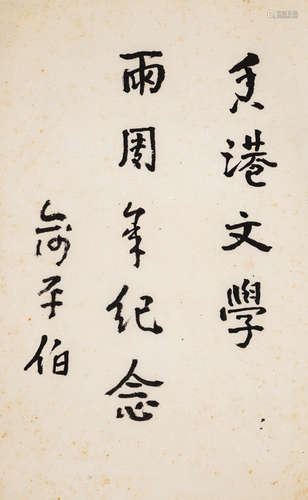 香港文學
兩周年纪念
俞平伯